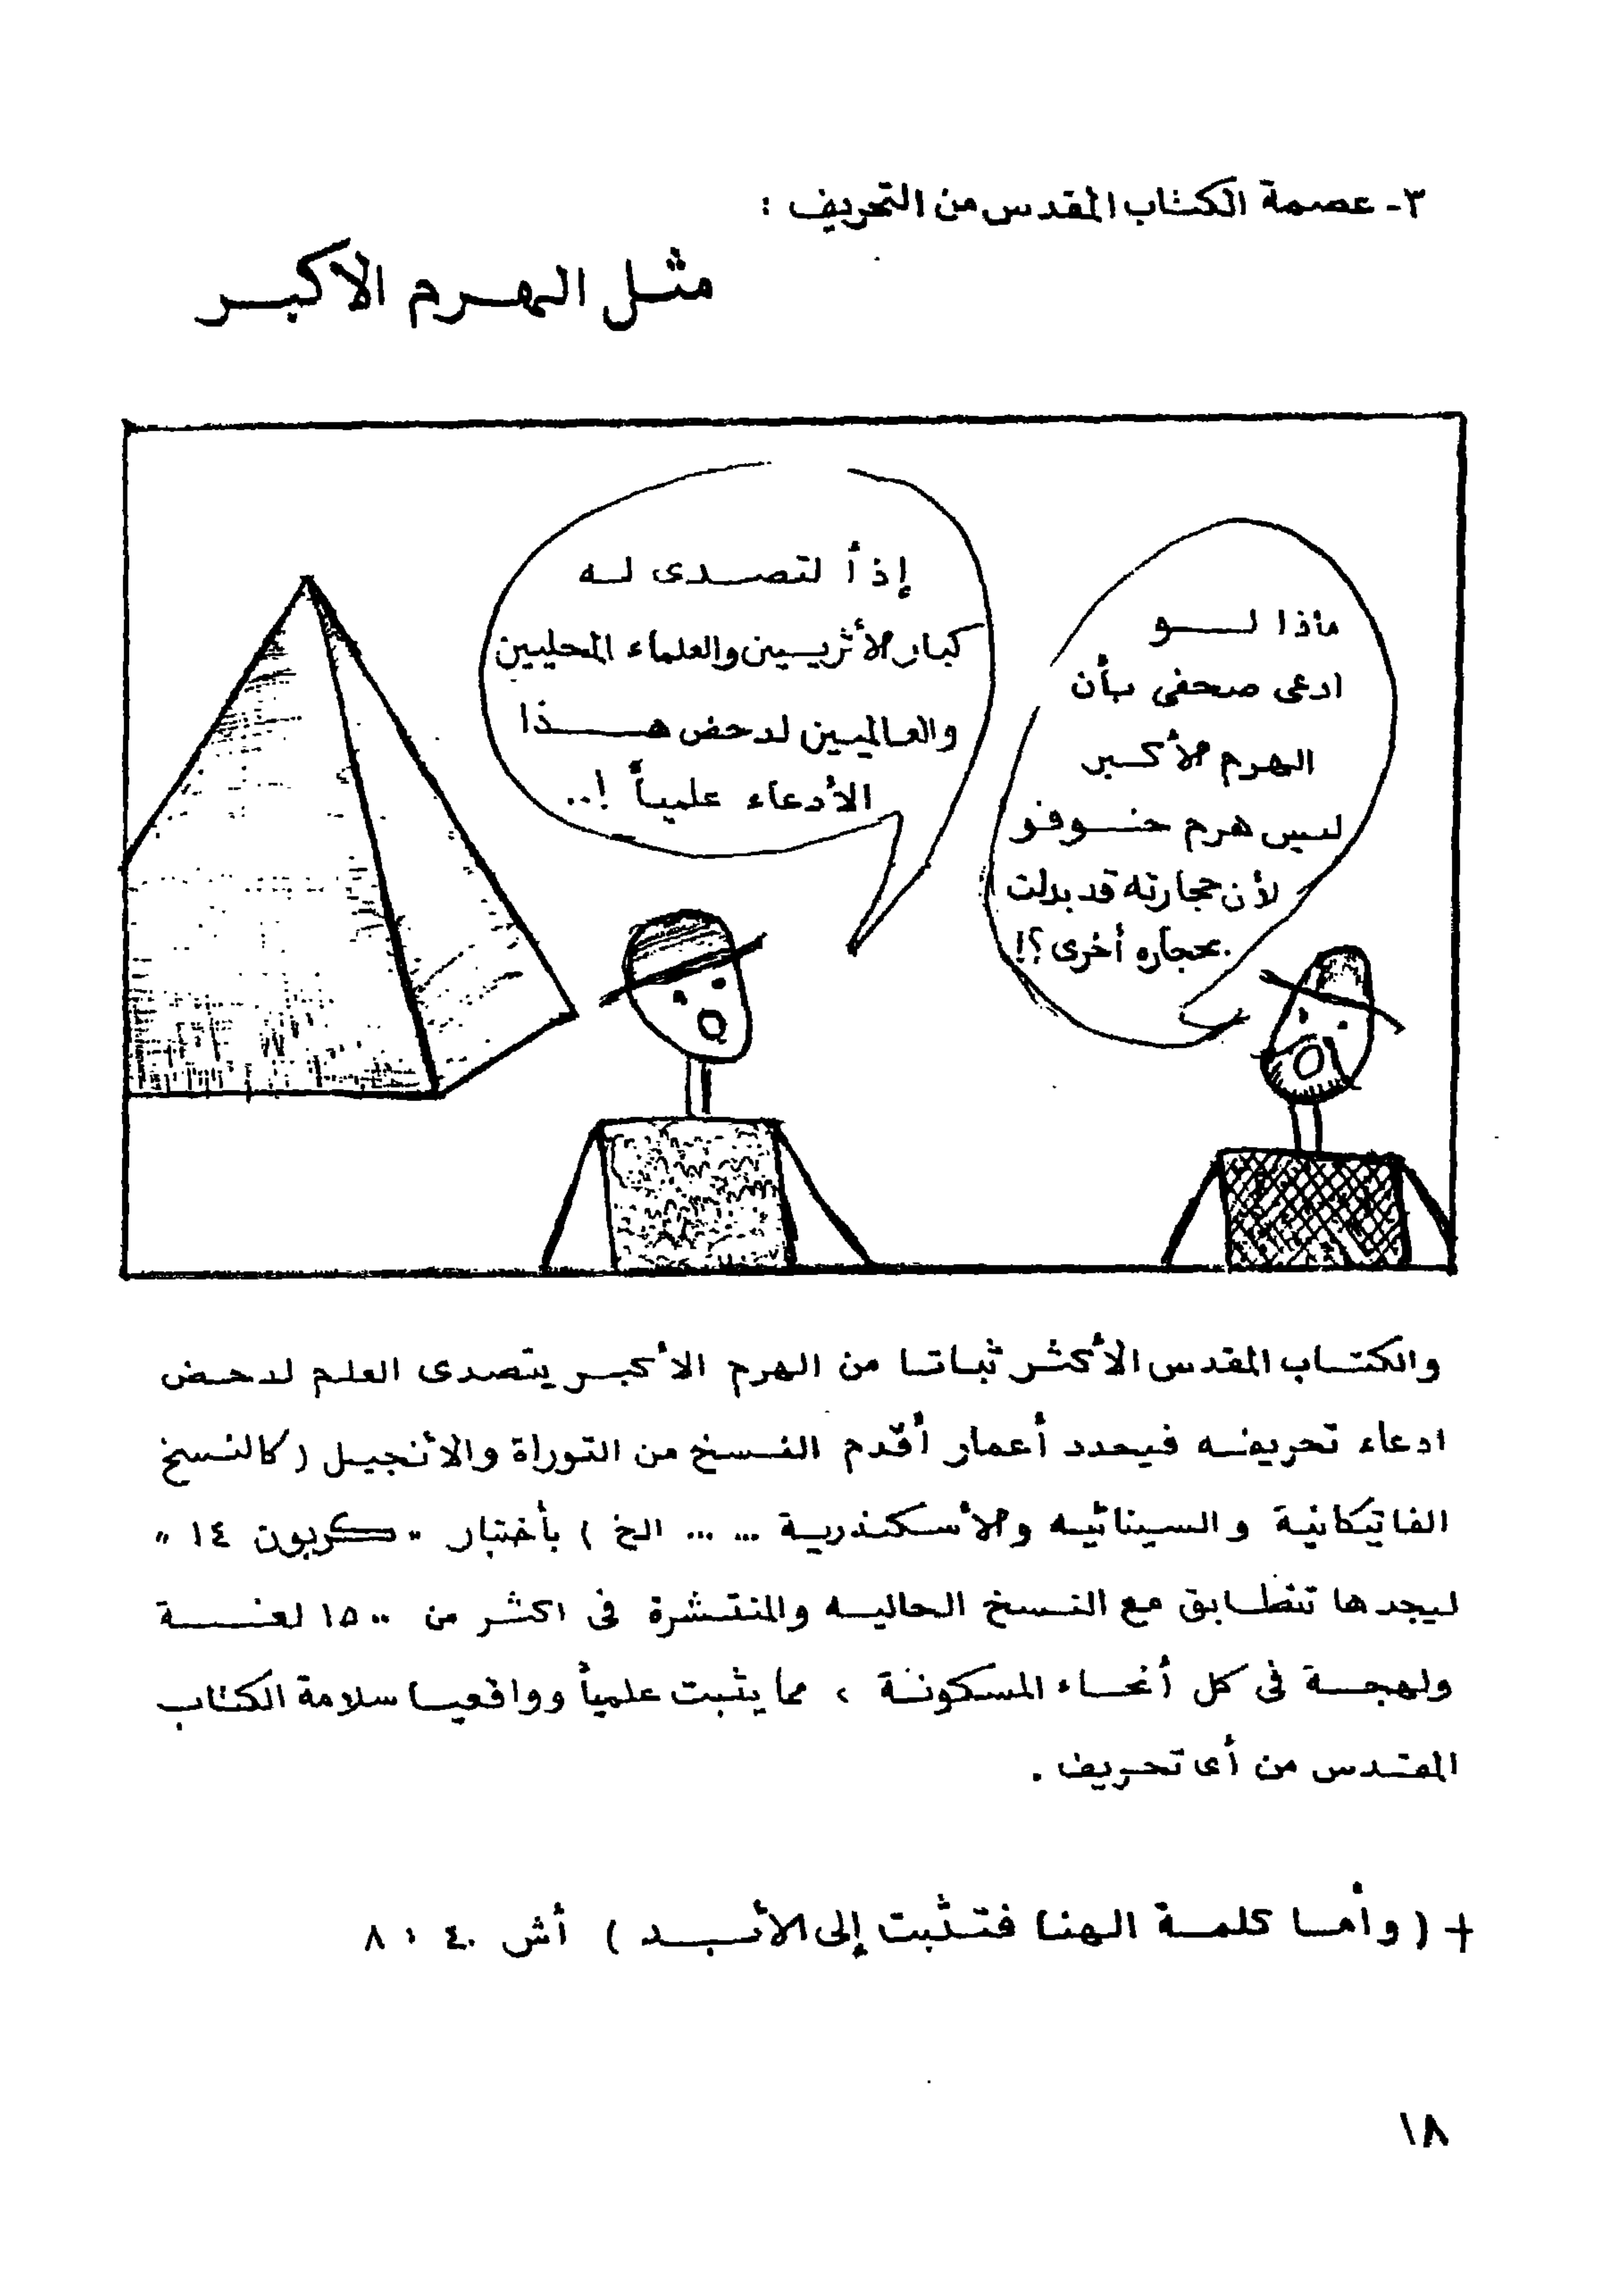 ٣- عصمة الكتاب المقدس من التحريف :
مثل الهرم الاكبر
ماذا لو
ادعى صحفى بأن
الهرم الأكبر
ليس هرم خوفو
لأن حجارته قد بدلت
بحجاره أخرى ؟!
إذاً لتصدى له
كبار الأثريين والعلماء المحليين
والعالميين لدحض هذا
الأدعاء علمياً !..
والكتاب المقدس الأكثر ثباتا من الهرم الأكبر يتصدى العلم لدحض
ادعاء تحريفه فيحدد أعمار أقدم النسخ من التوراة والأنجيل ( كالنسخ
الفاتيكانية والسينائيه والأسكندرية ... ... الخ ) بأختبار " كربون ١٤ "
ليجدها تتطابق مع النسخ الحاليه والمنتشرة فى اكثر من ١٥٠٠ لغة
ولهجة فى كل أنحاء المسكونة ، مما يثبت علمياً وواقعيا سلامة الكتاب
المقدس من أى تحريف .
+ ( وأما كلمة الهنا فتثبت إلى الأبد ) أش ٤٠ : ٨
١٨